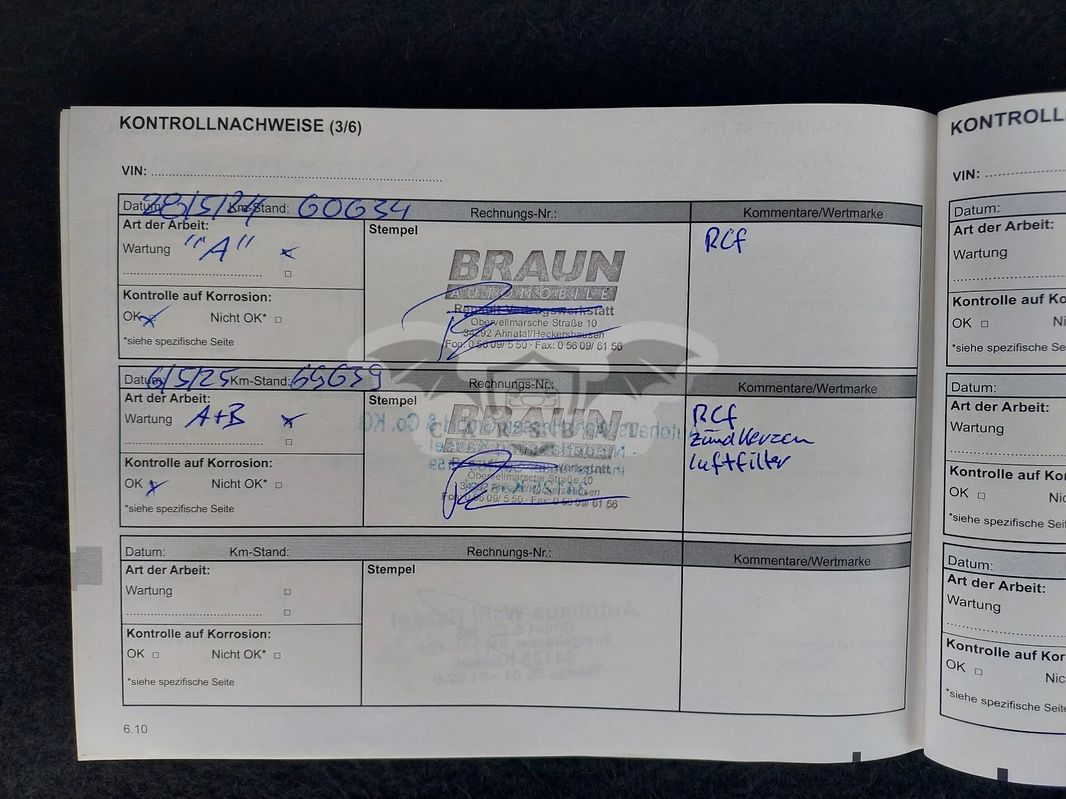 KONTROLLNACHWEISE (3/6)
VIN:
Datum: 28/5/24 Km-Stand: 60634 Rechnungs-Nr.: Kommentare/Wertmarke
Art der Arbeit: Stempel
Wartung "A" RCf
BRAUN
AUTOMOBILE
Kontrolle auf Korrosion:
OK Nicht OK*
Obervellmarsche Straße 10
34292 Ahnatal/Heckershausen
Fon: 0 56 09/ 5 50 · Fax: 0 56 09/ 61 56
*siehe spezifische Seite
Datum: 6/5/25 Km-Stand: 65639 Rechnungs-Nr.: Kommentare/Wertmarke
Art der Arbeit: Stempel
Wartung A+B
RCf
Zündkerzen
Luftfilter
BRAUN
Kontrolle auf Korrosion:
OK Nicht OK*
Obervellmarsche Straße 10
Fon: 0 56 09/ 5 50 · Fax: 0 56 09/ 61 56
*siehe spezifische Seite
Datum: Km-Stand: Rechnungs-Nr.: Kommentare/Wertmarke
Art der Arbeit: Stempel
Wartung
Kontrolle auf Korrosion:
OK Nicht OK*
*siehe spezifische Seite
6.10
KONTROLL
VIN:
Datum:
Art der Arbeit:
Wartung
Kontrolle auf Ko
OK Ni
*siehe spezifische Seite
Datum:
Art der Arbeit:
Wartung
Kontrolle auf Kor
OK Nic
*siehe spezifische Seite
Datum:
Art der Arbeit:
Wartung
Kontrolle auf Kor
OK Nic
*siehe spezifische Seite